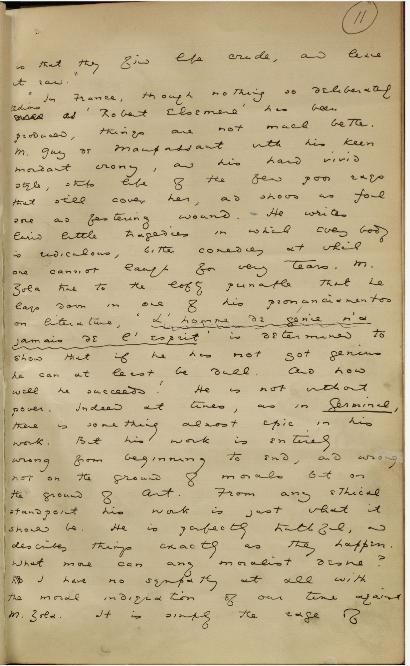 11
so that they find life crude, and leave
it raw."
"In France, though nothing so deliberately
tedious as 'Robert Elsmere' has been
produced, things are not much better.
M. Guy de Maupassant with his keen
mordant irony, and his hard vivid
style, strips life of the few poor rags
that still cover her, and shows us foul
sore and festering wound. He writes
lurid little tragedies in which every body
is ridiculous, bitter comedies at which
one cannot laugh for very tears. M.
Zola true to the lofty principle that he
lays down in one of his pronunciamientos
on literature, 'L'homme de genie n'a
jamais de l'esprit' is determined to
show that if he has not got genius
he can at least be dull. And how
well he succeeds! He is not without
power. Indeed at times, as in Germinal,
there is something almost epic in his
work. But his work is entirely
wrong from beginning to end, and wrong
not on the ground of morals but on
the ground of Art. From any ethical
standpoint his work is just what it
should be. He is perfectly truthful, and
describes things exactly as they happen.
What more can any moralist desire?
I have no sympathy at all with
the moral indignation of our time against
M. Zola. It is simply the rage of